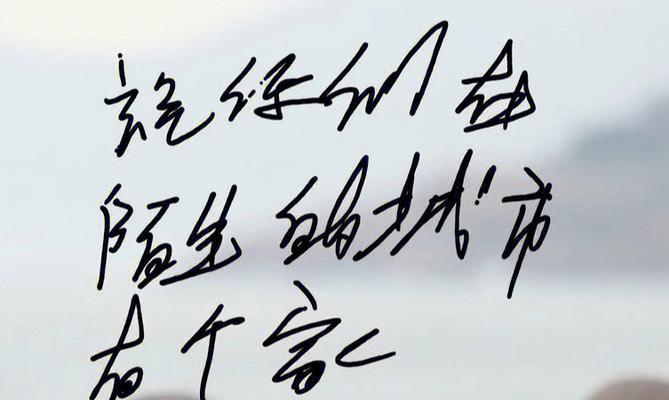 愿你们在
陌生的城市
有个家